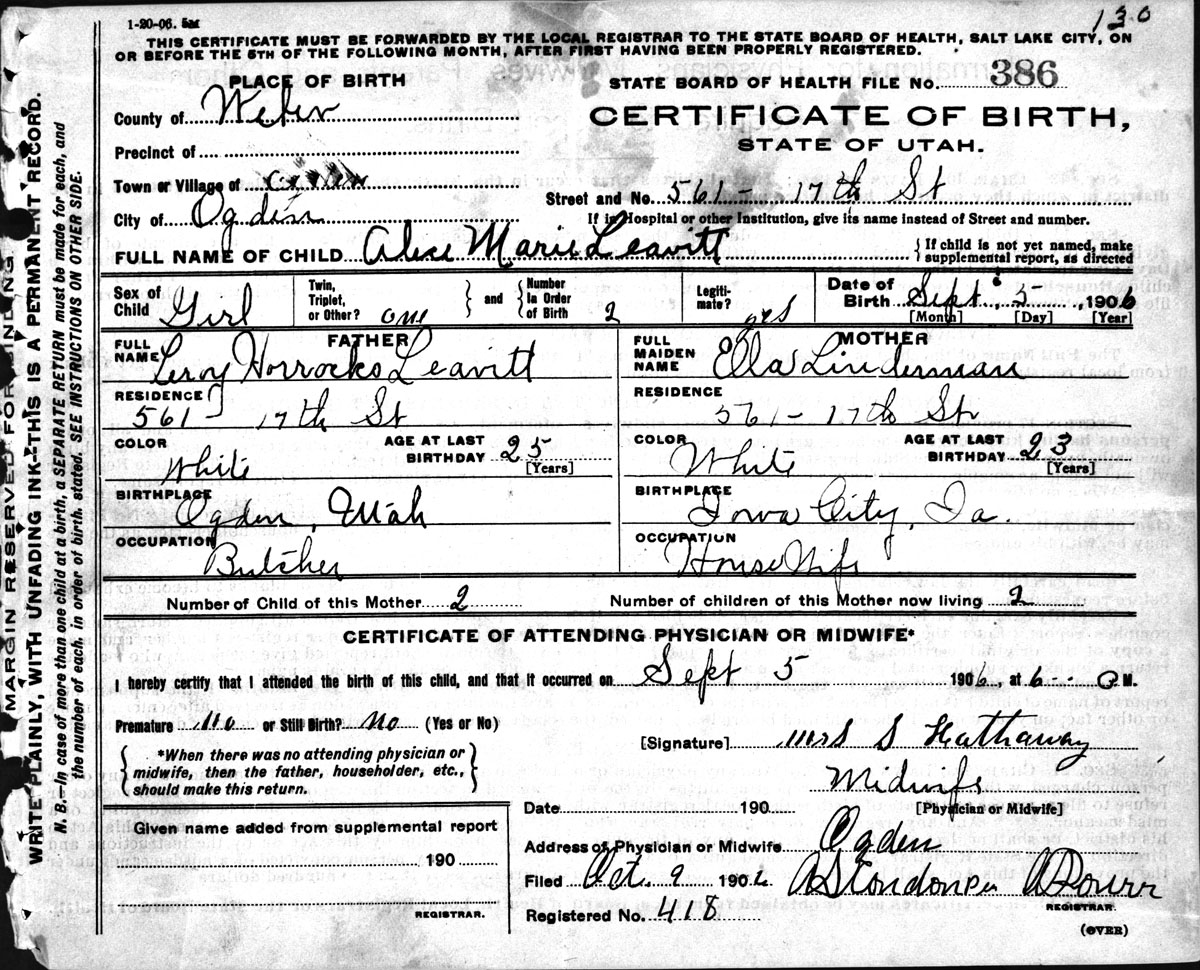 1-20-06. 5M
136
THIS CERTIFICATE MUST BE FORWARDED BY THE LOCAL REGISTRAR TO THE STATE BOARD OF HEALTH, SALT LAKE CITY, ON
OR BEFORE THE 5TH OF THE FOLLOWING MONTH, AFTER FIRST HAVING BEEN PROPERLY REGISTERED.
MARGIN RESERVED FOR BINDING.
WRITE PLAINLY, WITH UNFADING INK-THIS IS A PERMANENT RECORD.
N. B.-In case of more than one child at a birth, a SEPARATE RETURN must be made for each, and
the number of each, in order of birth, stated. SEE INSTRUCTIONS ON OTHER SIDE.
PLACE OF BIRTH
STATE BOARD OF HEALTH FILE NO. 386
County of Weber
CERTIFICATE OF BIRTH,
STATE OF UTAH.
Precinct of
Town or Village of
City of Ogden
Street and No. 561 - 17th St
If in Hospital or other Institution, give its name instead of Street and number.
FULL NAME OF CHILD Alice Marie Leavitt
{ If child is not yet named, make
supplemental report, as directed
Sex of Child Girl
Twin, Triplet, or Other? one } and { Number In Order of Birth 2
Legiti-mate? yes
Date of Birth Sept 5 1906
[Month] [Day] [Year]
FATHER
FULL NAME Leroy Horrocks Leavitt
RESIDENCE 561 17th St
COLOR White
AGE AT LAST BIRTHDAY 25
[Years]
BIRTHPLACE Ogden, Utah
OCCUPATION Butcher
MOTHER
FULL MAIDEN NAME Ella Linderman
RESIDENCE 561 - 17th St
COLOR White
AGE AT LAST BIRTHDAY 23
[Years]
BIRTHPLACE Iowa City, Ia.
OCCUPATION House Wife
Number of Child of this Mother 2
Number of children of this Mother now living 2
CERTIFICATE OF ATTENDING PHYSICIAN OR MIDWIFE*
I hereby certify that I attended the birth of this child, and that it occurred on Sept 5 1906, at 6 M.
Premature no or Still Birth? no (Yes or No)
{ *When there was no attending physician or
midwife, then the father, householder, etc.,
should make this return. }
[Signature] Mrs S Hathaway
Midwife
[Physician or Midwife]
Date 190
Given name added from supplemental report
190
REGISTRAR.
Address of Physician or Midwife Ogden
Filed Oct. 9 1906
REGISTRAR.
Registered No. 418
(OVER)